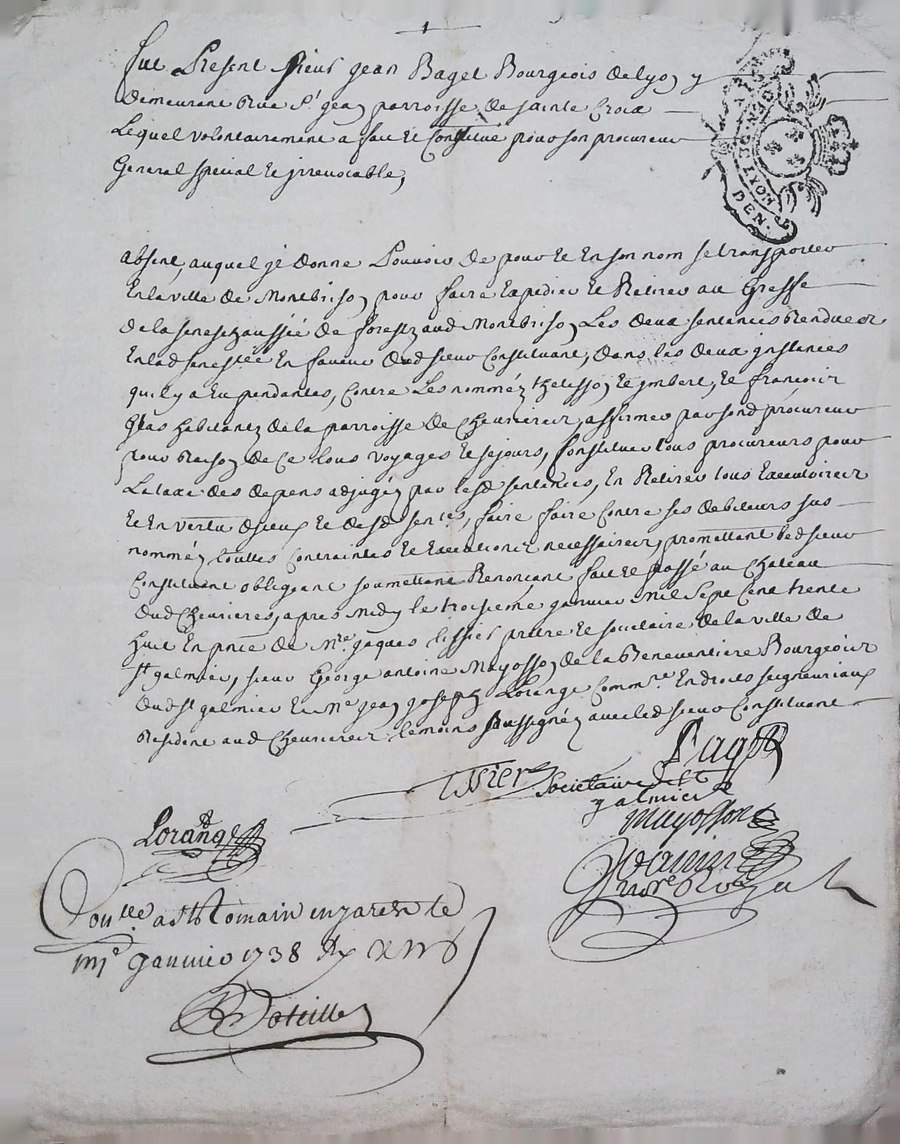 fut Present sieur jean Baget Bourgeois de lyon y
demeurant Rue St jean parroisse de sainte Croix
Lequel volontairement a fait et Constitué pour son procureur
General special et jrrevocable,
absent, auquel jl donne Pouvoir de pour et En son nom se transporter
En la ville de Montbrison pour faire Expedier et Retirer au Greffe
de la senechaussée de forestz aud Montbrison Les deux sentances Rendues
En lad senessée En faveur dud sieur Constituant, dans les deux jnstances
quil y a Eu pendantes, Contre Les nommés thelisson et jmbert, et francois
Gras habitantz de la parroisse de Chevrieres, affirmer par sond procureur
pour Raison de Ce tous voyages et sejours, Constituer tous procureurs pour
La taxe des depens adjugés par lesd sentances, En Retirer tous Executoires
Et En vertu d'jceux et desd sences, faire faire Contre ses debiteurs sus
nommés touttes Contraintes et Executions necessaires, promettant led sieur
Constituant obligeant soumettant Renonçant fait et passé au Chateau
dud Chevrieres, apres Midy le troisieme janvier Mil Sept Cent trente
huit En pnce de Mre jaques tissier pretre et societaire de la ville de
st galmier, sieur George antoine Mayosson de la Beneventiere Bourgeois
dud st galmier et Me jean joseph Lorange Commre En droits seigneuriaux
Resident aud Chevrieres temoins soussignés avec led sieur Constituant
Baget
tissier societaire de st
galmier
mayosson
Lorange
Joanin
nore Royal
Conllé a st Romain en jarest le
janvier 1738
GEN. DE LYON
DEN.